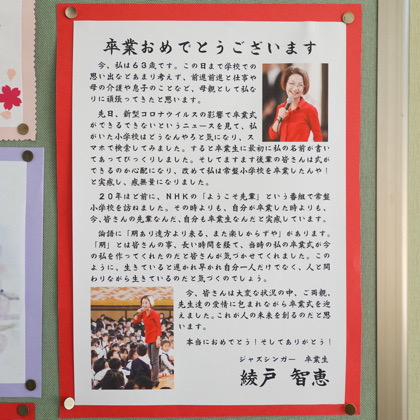 卒業おめでとうございます
今、私は６３歳です。この日まで学校での
思い出などあまり考えず、前進前進と仕事や
母の介護や息子のことなど、母親として私な
りに頑張ってきたと思います。
先日、新型コロナウイルスの影響で卒業式
ができるできないというニュースを見て、私
がいた小学校はどうなんやろと気になり、ス
マホで検索してみました。すると卒業生に最初に私の名前が書い
てあってびっくりしました。そしてますます後輩の皆さんは式が
できるのか心配になり、改めて私は常盤小学校を卒業したんや！
と実感し、感無量になりました。
２０年ほど前に、NHKの「ようこそ先輩」という番組で常盤
小学校を訪ねました。その時よりも、自分が卒業した時よりも、
今、皆さんの先輩なんだ、自分も卒業生なんだと実感しています。
論語に「朋あり遠方より来る、また楽しからずや」があります。
「朋」とは皆さんの事、長い時間を経て、当時の私の卒業式が今
の私を作ってくれたのだと皆さんが気づかせてくれました。この
ように、生きていると遅かれ早かれ自分一人だけでなく、人と関
わりながら生きているのだと気づくのでしょう。
今、皆さんは大変な状況の中、ご両親、
先生達の愛情に包まれながら卒業式を迎
えました。これが人の未来を創るのだと思
います。
本当におめでとう！そしてありがとう！
ジャズシンガー　卒業生
綾戸 智恵